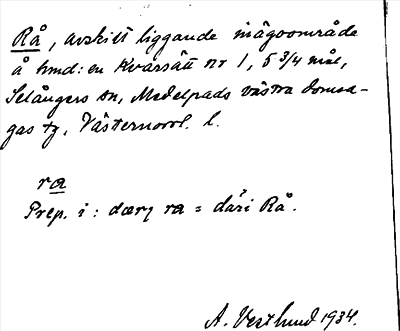 Rå, avskilt liggande inägoområde
å hmd: en Kvarsätt nr 1, 5 3/4 mål,
Selångers sn, Medelpads västra domsa-
gas tg, Västernorrl. l.
ra
Prep. i: dær ra = där i Rå.
A. Vestlund 1934.